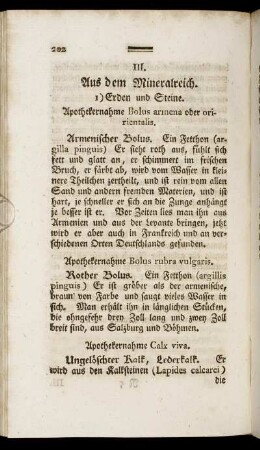 202
III.
Aus dem Mineralreich.
1) Erden und Steine.
Apothekernahme Bolus armena oder ori-
rientalis.
Armenischer Bolus. Ein Fetthon (ar-
gilla pinguis) Er sieht roth aus, fühlt sich
fett und glatt an, er schimmert im frischen
Bruch, er färbt ab, wird vom Wasser in klei-
nere Theilchen zertheilt, und ist rein vom allen
Sand und andern fremden Materien, und ist
hart, je schneller er sich an die Zunge anhängt
je besser ist er. Vor Zeiten lies man ihn aus
Armenien und aus der Levante bringen, jetzt
wird er aber auch in Frankreich und an ver-
schiedenen Orten Deutschlands gefunden.
Apothekernahme Bolus rubra vulgaris.
Rother Bolus. Ein Fetthon (argillis
pinguis) Er ist gröber als der armenische,
braun von Farbe und saugt vieles Wasser in
sich. Man erhält ihn in länglichen Stücken,
die ohngefehr drey Zoll lang und zwey Zoll
breit sind, aus Salzburg und Böhmen.
Apothekernahme Calx viva.
Ungelöschter Kalk, Lederkalk. Er
wird aus den Kalksteinen (Lapides calcarei)
die